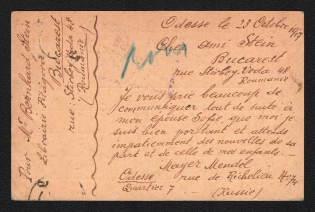 Odesse le 23 Octobre 1917
Cher ami Stein
Bucarest
rue Stirbey-Voda 48
Roumanie
Je vous prie beaucoup de
communiquer tout de suite à
mon épouse Sofie, que moi je
suis bien portant et attends
impatiemment des nouvelles de sa
part et de celle de mes enfants.
Mayer Mendel
Odesse rue de Richelieu
Quartier 7 (Russie)
Pour Mr Bernhard Stein
Librairie
Bucarest
rue Stirbey-Voda 48
(Roumanie)